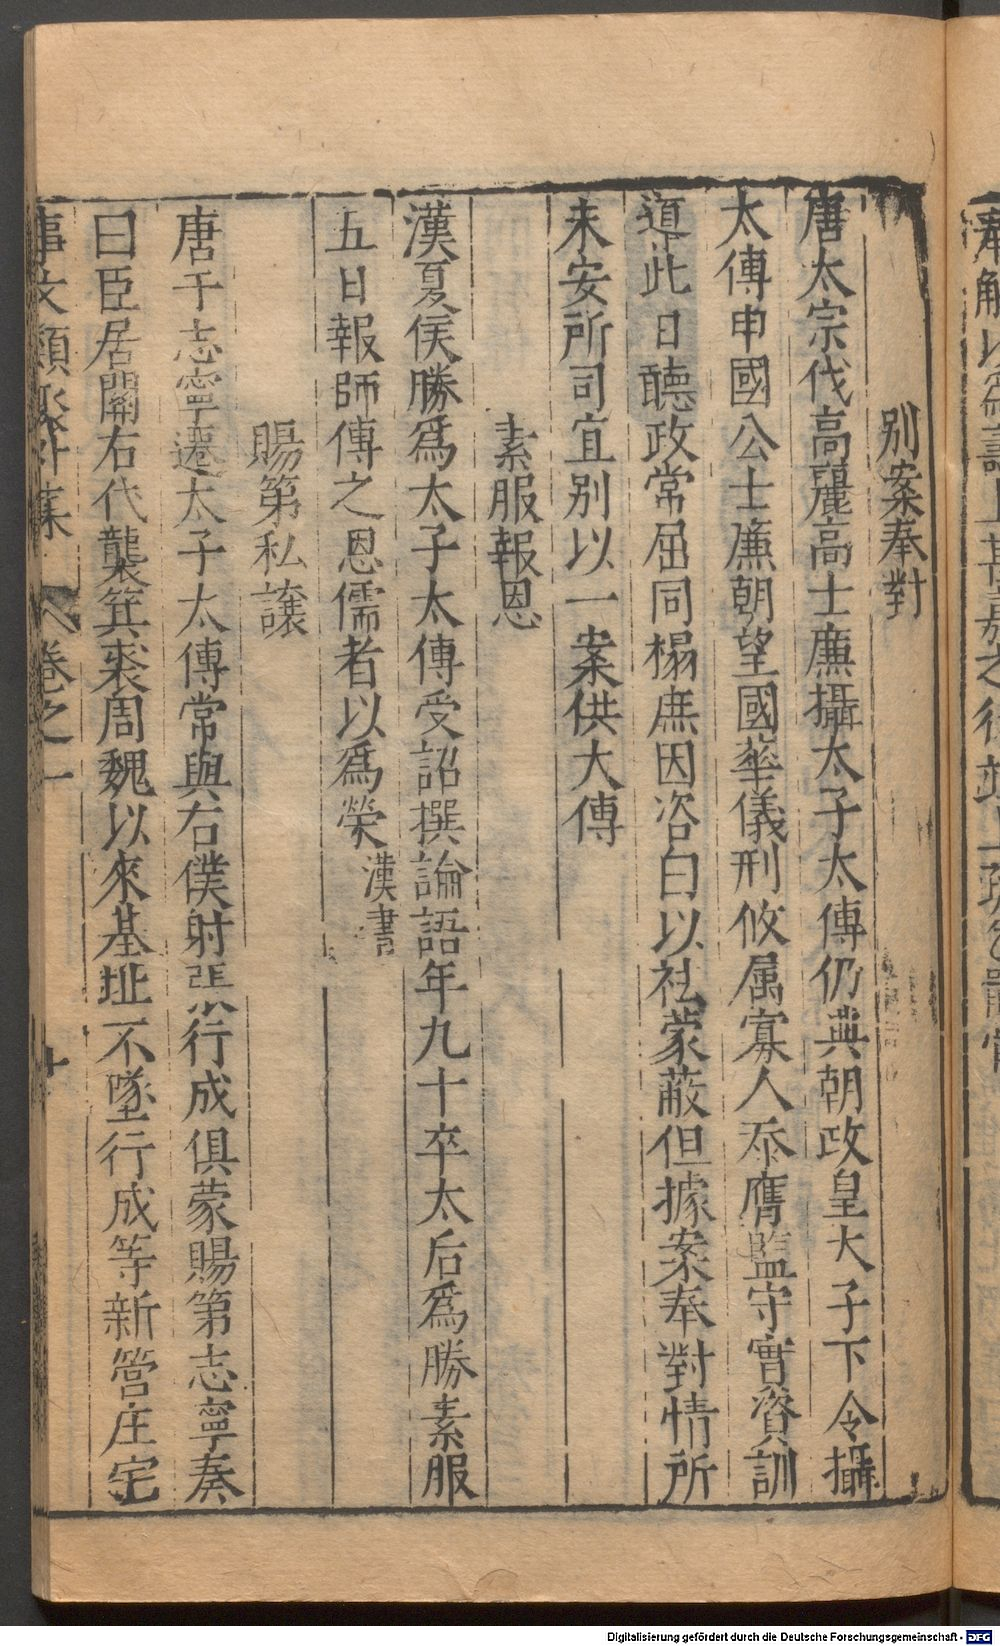 别案奉對
唐太宗代高麗高士廉攝太子太傳仍典朝政皇大子下令攝
太傳申國公士廉朝望國華儀刑攸属寡人忝膺監守實資訓
導此日聽政常屈同榻庶因咨白以祛蒙蔽但據案奉對情所
未安所司宜别以一案供大傳
素服報恩
漢夏侯勝爲太子太傳受詔撰論語年九十卒太后爲勝素服
五日報師傳之恩儒者以爲榮漢書
賜第私讓
唐于志寧遷太子太傳常與右僕射張行成俱蒙賜第志寧奏
曰臣居關右代襲箕裘周魏以來基址不墜行成等新營庄宅
事文類聚外集 卷之一 十
Digitalisierung gefördert durch die Deutsche Forschungsgemeinschaft - DFG